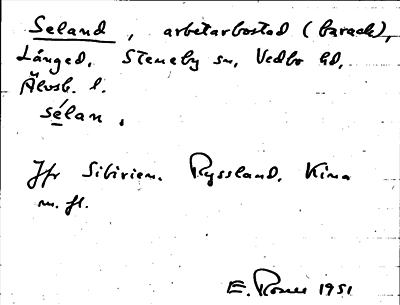 Seland, arbetarbostad (barack),
Långed, Steneby sn, Vedbo hd,
Älvsb. l.
sélan.
Jfr Sibirien. Ryssland, Kina
m. fl.
E. Rosén 1951